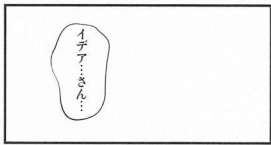 イデア…さん…